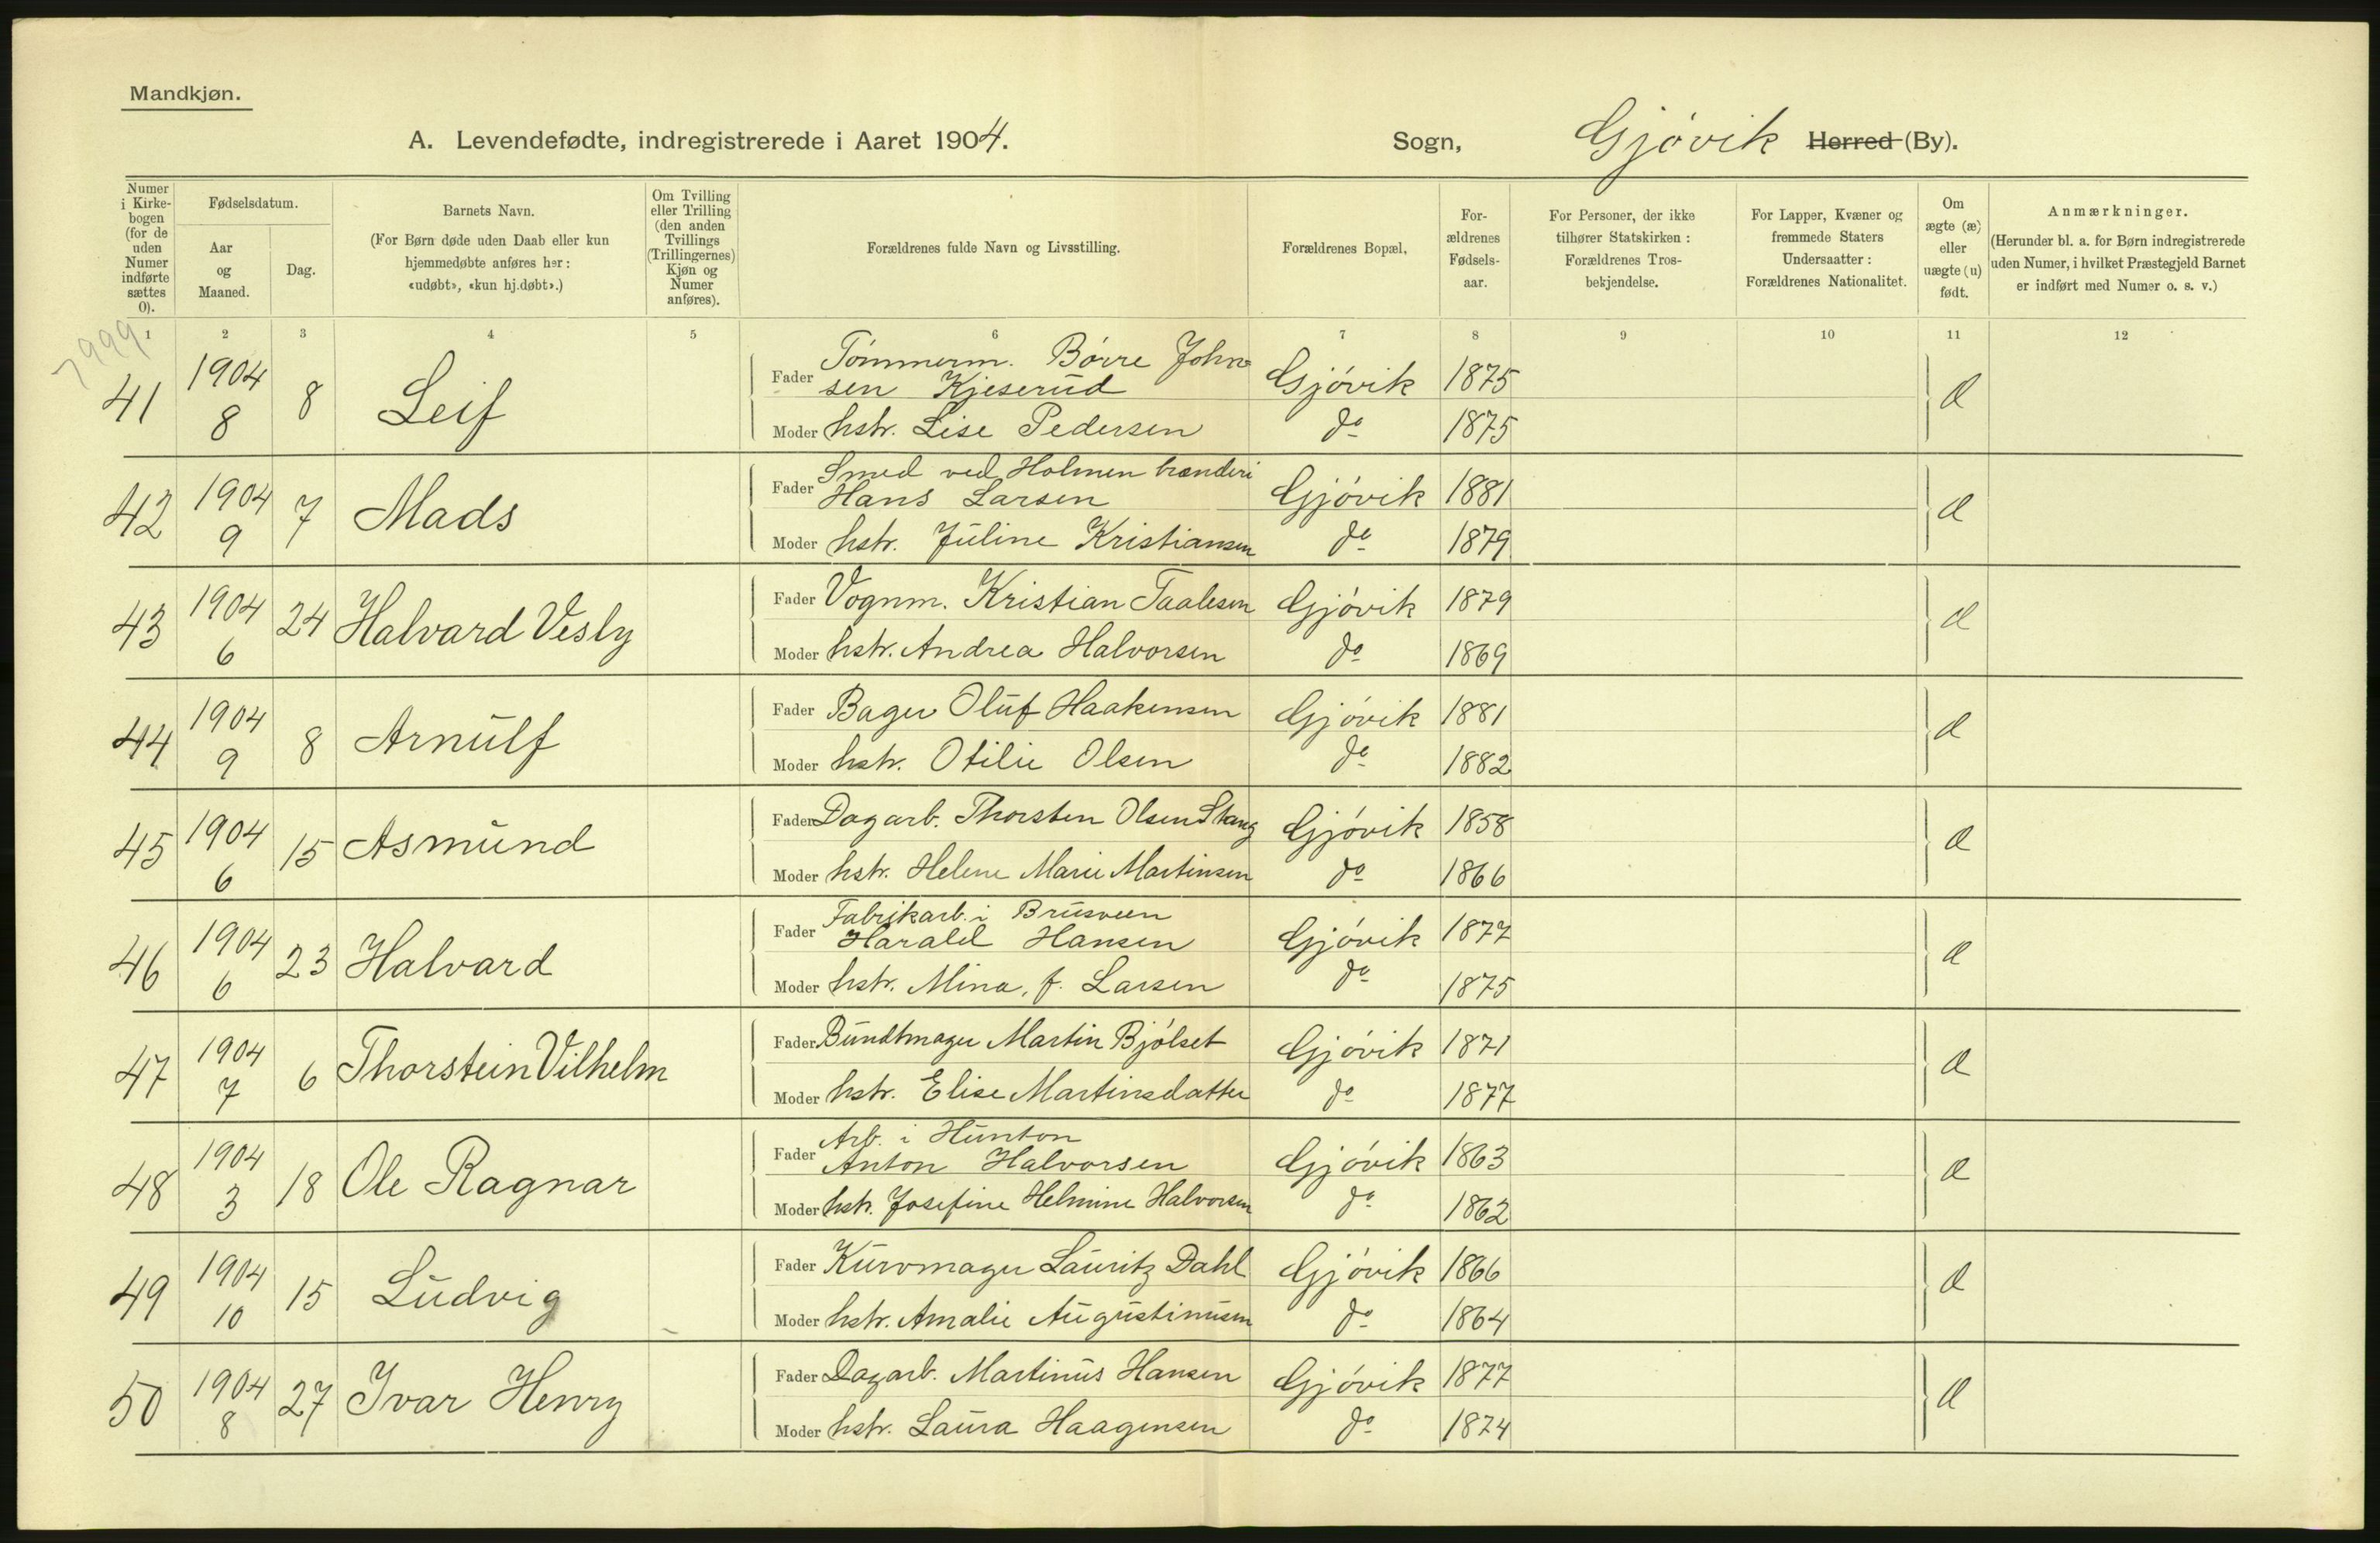 Mandkjøn.
A. Levendefødte, indregistrerede i Aaret 1904. Sogn, Gjövik Herred (By).
Numer i Kirkebogen (for de uden Numer indførte sættes 0).
Fødselsdatum.
Aar og Maaned.
Dag.
Barnets Navn.
(For Børn døde uden Daab eller kun hjemmedøbte anføres her: «udøbt», «kun hj.døbt».)
Om Tvilling eller Trilling (den anden Tvillings (Trillingernes) Kjøn og Numer anføres).
Forældrenes fulde Navn og Livsstilling.
Forældrenes Bopæl.
Forældrenes Fødselsaar.
For Personer, der ikke tilhører Statskirken: Forældrenes Trosbekjendelse.
For Lapper, Kvæner og fremmede Staters Undersaatter: Forældrenes Nationalitet.
Om ægte (æ) eller uægte (u) født.
Anmærkninger.
(Herunder bl. a. for Børn indregistrerede uden Numer, i hvilket Præstegjeld Barnet er indført med Numer o. s. v.)
1 2 3 4 5 6 7 8 9 10 11 12
7999
41 1904 8 8 Leif
Fader Tömmerm. Börre John
sen Kjeserud Gjövik 1875
Moder hstr. Lise Pedersen do 1875 æ
42 1904 9 7 Mads
Fader Smed ved Holmen brænderi
Hans Larsen Gjövik 1881
Moder hstr. Juline Kristiansen do 1879 æ
43 1904 6 24 Halvard Vesly
Fader Vognm. Kristian Taalesen Gjövik 1879
Moder hstr. Andrea Halvorsen do 1869 æ
44 1904 9 8 Arnulf
Fader Bager Oluf Haakensen Gjövik 1881
Moder hstr. Otilie Olsen do 1882 æ
45 1904 6 15 Asmund
Fader Dagarb. Thorsten Olsen Stang Gjövik 1858
Moder hstr. Helene Marie Martinsen do 1866 æ
46 1904 6 23 Halvard
Fader Fabrikarb. i Brusveen
Harald Hansen Gjövik 1877
Moder hstr. Mina, f. Larsen do 1875 æ
47 1904 7 6 Thorstein Vilhelm
Fader Bundtmager Martin Bjölset Gjövik 1871
Moder hstr. Elise Martinsdatter do 1877 æ
48 1904 3 18 Ole Ragnar
Fader Arb. i Hunton
Anton Halvorsen Gjövik 1863
Moder hstr. Josefine Helmine Halvorsen do 1862 æ
49 1904 10 15 Ludvig
Fader Kurvmager Lauritz Dahl Gjövik 1866
Moder hstr. Amalie Augustinusen do 1864 æ
50 1904 8 27 Ivar Henry
Fader Dagarb. Martinus Hansen Gjövik 1877
Moder hstr. Laura Haagensen do 1874 æ